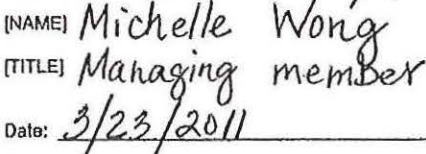 [NAME] Michelle Wong
[TITLE] Managing member
Date: 3/23/2011